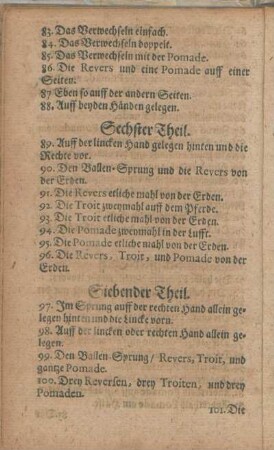 83. Das Verwechseln einfach.
84. Das Verwechseln doppelt.
85. Das Verwechseln mit der Pomade.
86. Die Revers und eine Pomade auff einer
Seiten.
87 Eben so auff der andern Seiten.
88. Auff beyden Händen gelegen.
Sechster Theil.
89. Auff der lincken Hand gelegen hinten und die
Rechte vor.
90. Den Ballen-Sprung und die Revers von
der Erden.
91. Die Revers etliche mahl von der Erden.
92. Die Troit zweymahl auff dem Pferde.
93. Die Troit etliche mahl von der Erden.
94. Die Pomade zweymahl in der Lufft.
95. Die Pomade etliche mahl von der Erden.
96. Die Revers, Troit, und Pomade von der
Erden.
Siebender Theil.
97. Im Sprung auff der rechten Hand allein ge-
legen hinten und die Lincke vorn.
98. Auff der lincken oder rechten Hand allein ge-
legen.
99. Den Ballen-Sprung/ Revers, Troit, und
gantze Pomade.
100. Drey Reversen, drey Troiten, und drey
Pomaden.
101. Die